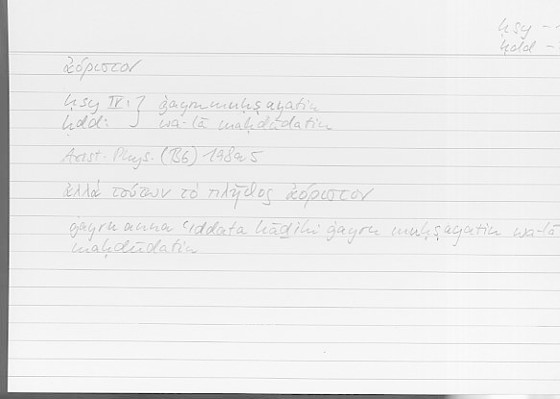 ḥṣy –
ḥdd –
ἀόριστον
ḥṣy IV: } ġayru muḥṣayatin
ḥdd: } wa-lā maḥdūdatin
Arist. Phys. (B6) 198a5
ἀλλὰ τούτων τὸ πλῆθος ἀόριστον
ġayru anna ʿiddata hāḏihi ġayru muḥṣayatin wa-lā
maḥdūdatin